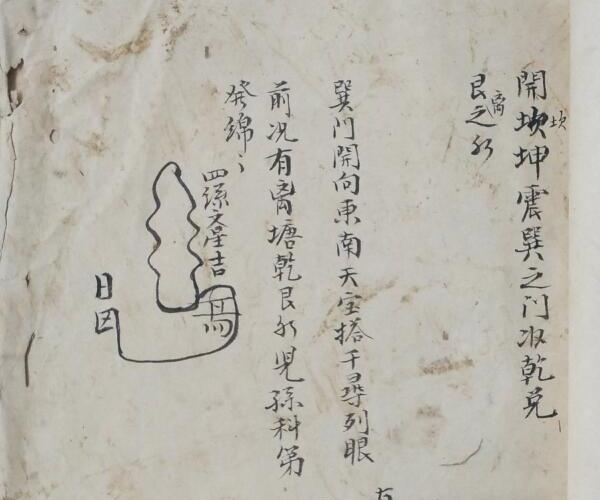 開坎坤震巽之门收乾兑
坎
艮之水
离
巽门開向東南天宝塔千尋列眼
前况有离塘乾艮水児孫科第
発綿〻
四孫文星吉
馬
日